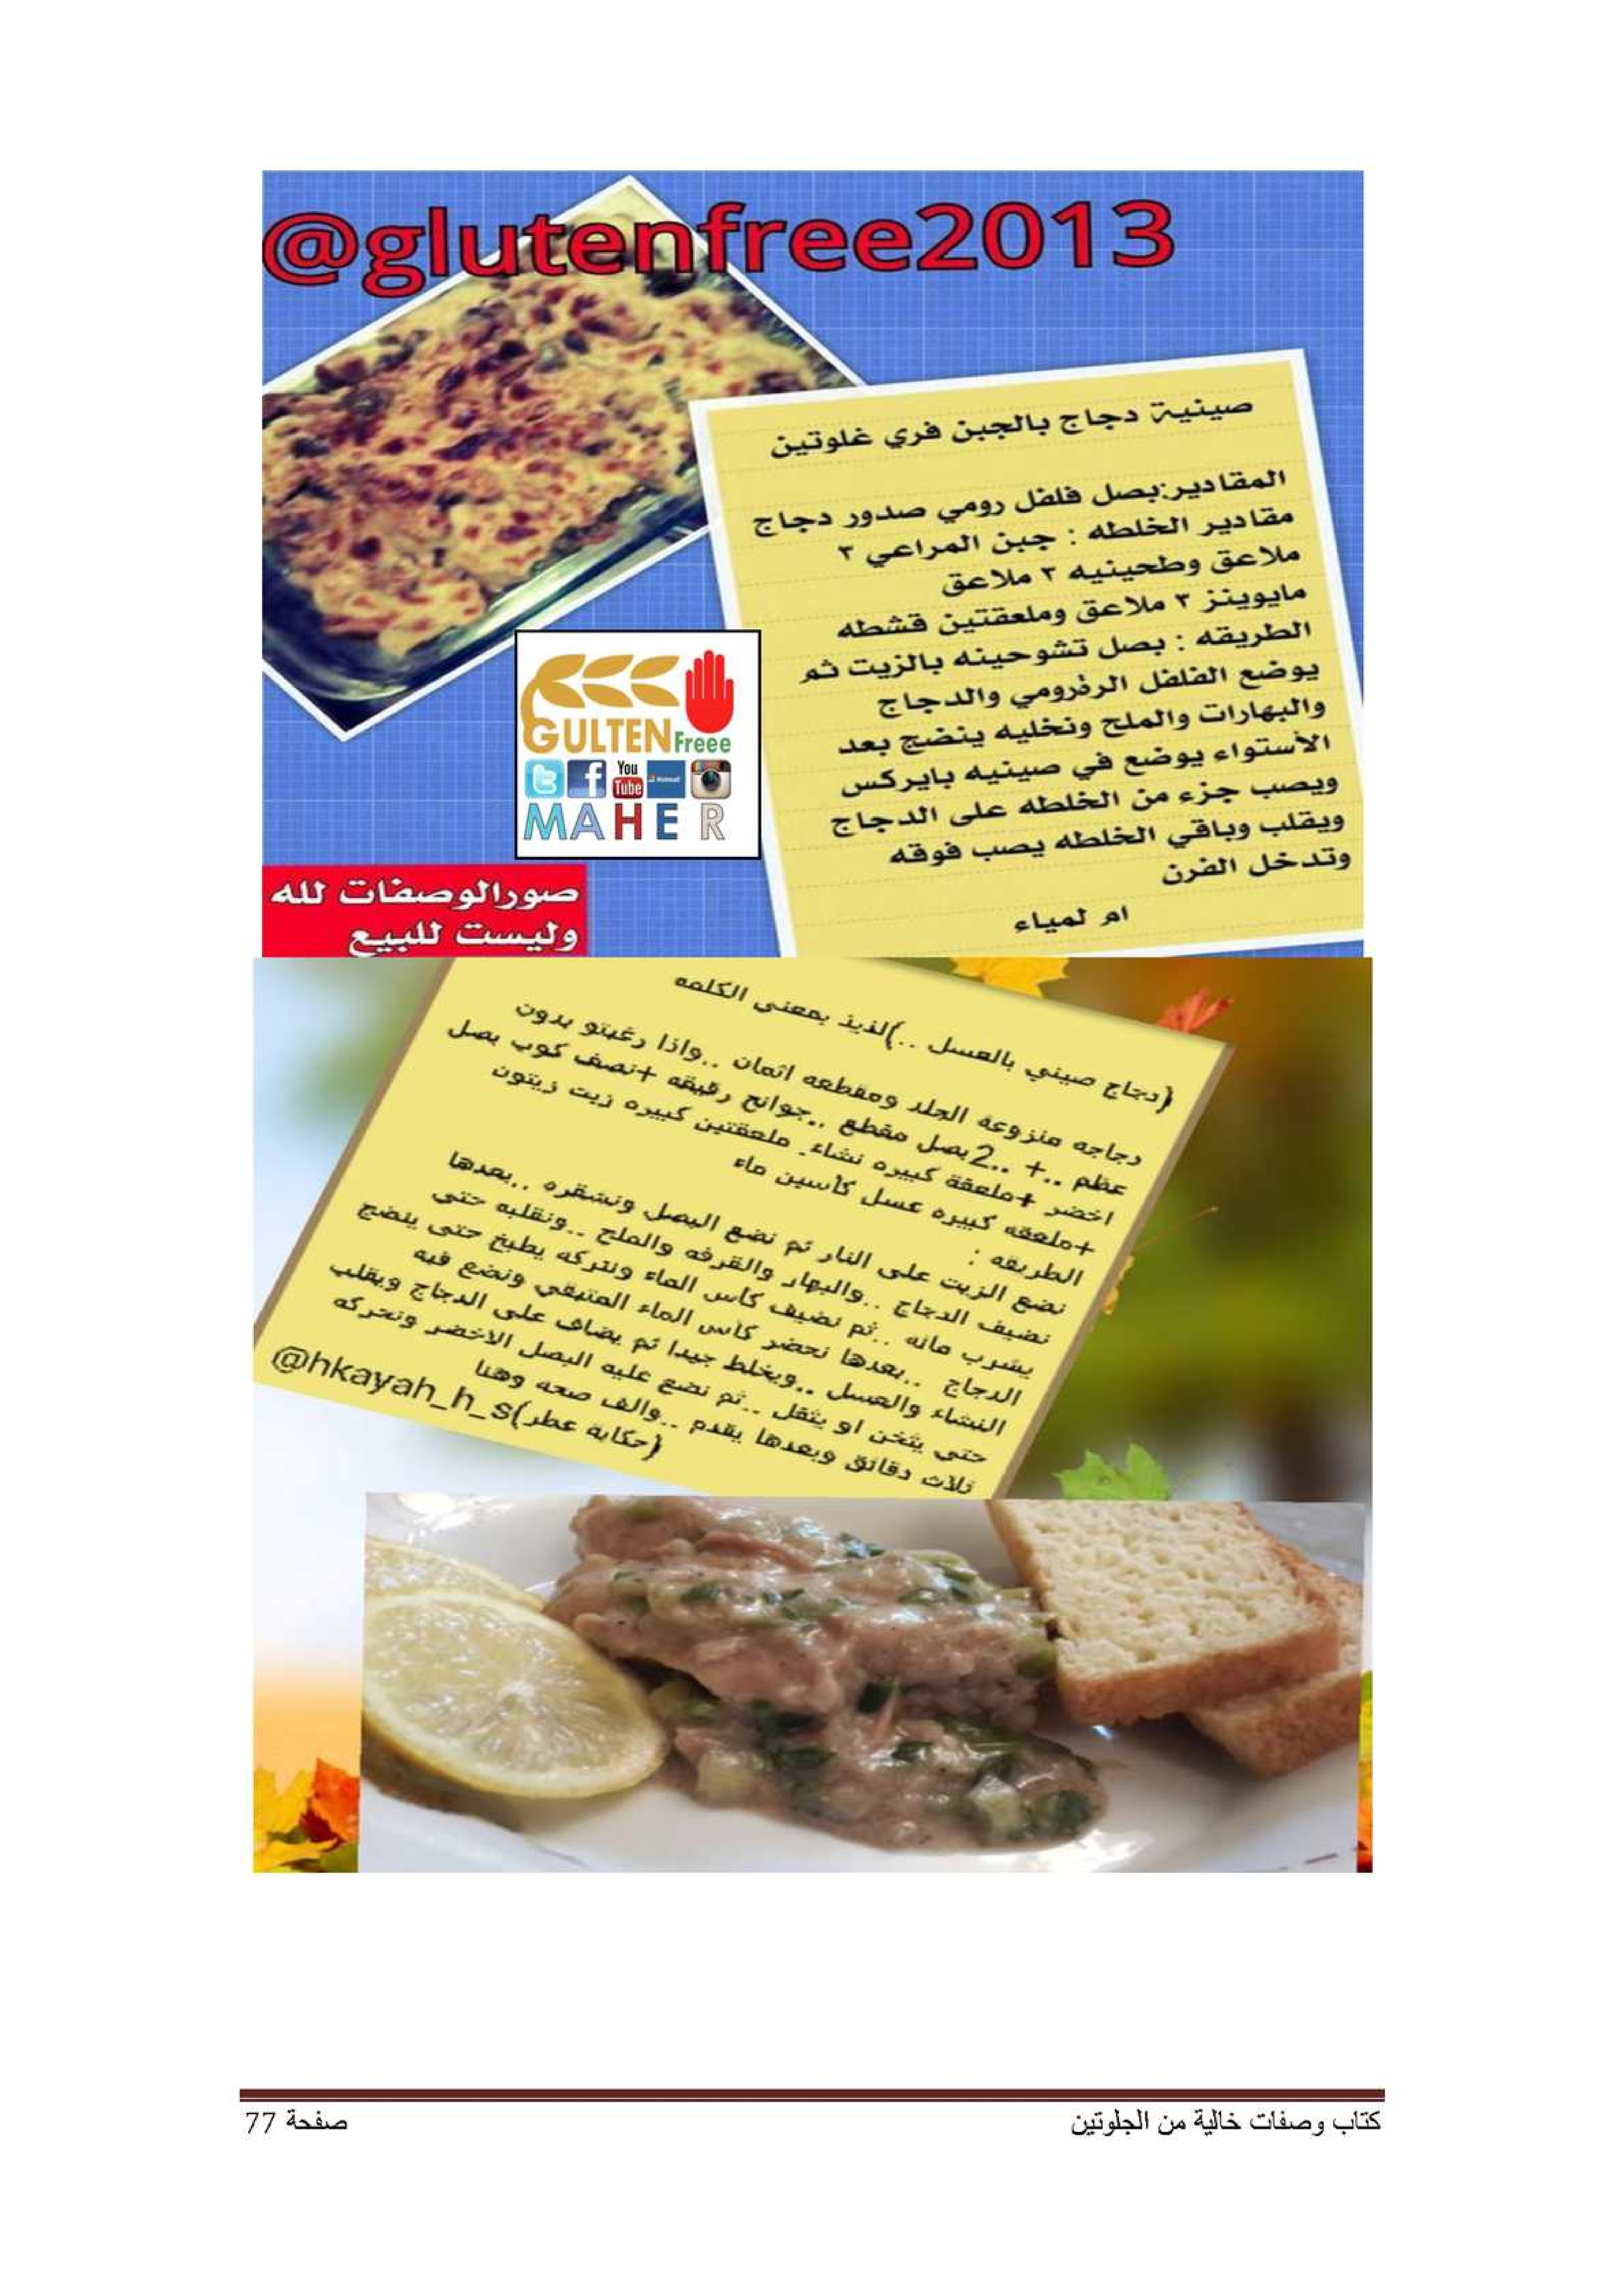 @glutenfree2013
صينية دجاج بالجبن فري غلوتين
المقادير:بصل فلفل رومي صدور دجاج
مقادير الخلطه : جبن المراعي ٣
ملاعق وطحينيه ٣ ملاعق
مايوينز ٣ ملاعق وملعقتين قشطه
الطريقه : بصل تشوحينه بالزيت ثم
يوضع الفلفل الرفرومي والدجاج
والبهارات والملح ونخليه ينضج بعد
الأستواء يوضع في صينيه بايركس
ويصب جزء من الخلطه على الدجاج
ويقلب وباقي الخلطه يصب فوقه
وتدخل الفرن
ام لمياء
GULTEN Freee
You
Tube
Hotmail
MAHER
صورالوصفات لله
وليست للبيع
(دجاج صيني بالعسل ..)لذيذ بمعنى الكلمه
دجاجه منزوعة الجلد ومقطعه اثمان ..واذا رغبتو بدون
عظم ..+ ..2بصل مقطع ..جوانح رقيقه +نصف كوب بصل
اخضر +ملعقة كبيره نشاء. ملعقتين كبيره زيت زيتون
+ملعقه كبيره عسل كأسين ماء
الطريقه :
نضع الزيت على النار ثم نضع البصل ونشقره ..بعدها
نضيف الدجاج ..والبهار والقرفه والملح ..ونقلبه حتى
يشرب مائه ..ثم نضيف كأس الماء ونتركه يطبخ حتى ينضج
الدجاج ..بعدها نحضر كأس الماء المتبقي ونضع فيه
النشاء والعسل ..ويخلط جيدا ثم يضاف على الدجاج ويقلب
حتى يثخن او يثقل ..ثم نضع عليه البصل الاخضر ونحركه
ثلاث دقائق وبعدها يقدم ..والف صحه وهنا
(حكاية عطر)@hkayah_h_s
كتاب وصفات خالية من الجلوتين
صفحة 77